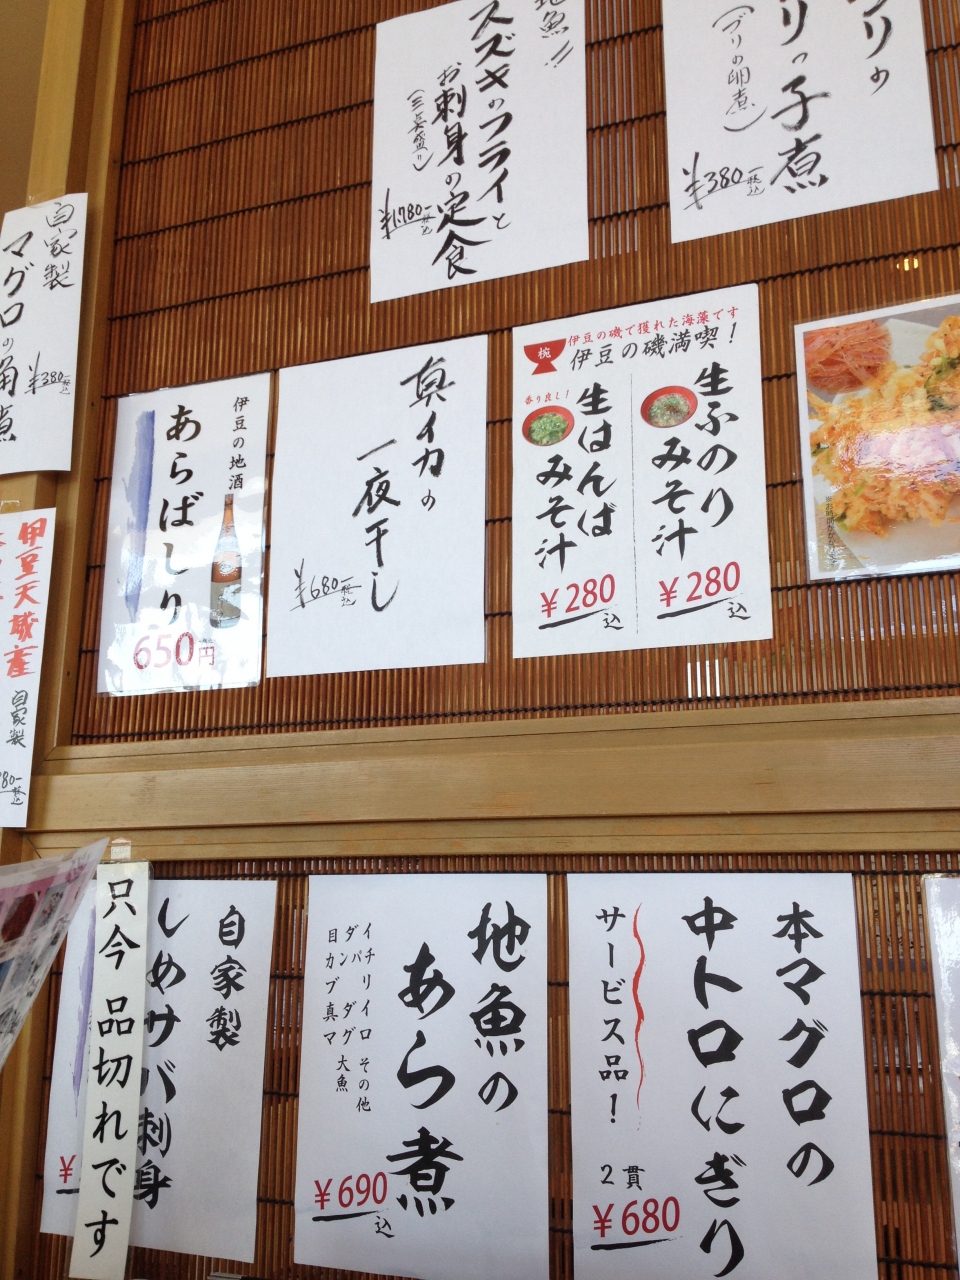 地魚!!
スズキのフライと
お刺身の定食
(三点盛り)
¥1,780-税込
リの
リっ子煮
(ブリの卵煮)
¥380-税込
自家製
マグロの角煮
¥380-税込
伊豆の地酒
あらばしり
650円
真イカの
一夜干し
¥680-税込
椀
伊豆の磯で獲れた海藻です
伊豆の磯満喫!
生ふのり
みそ汁
¥280
込
香り良し!
生はんば
みそ汁
¥280
込
伊豆天城産
自家製
80-税込
只今 品切れです
自家製
しめサバ刺身
¥
地魚の
あら煮
イチリイロ その他
ダバ ダグ 大魚
目カブ真マ
¥690
込
本マグロの
中トロにぎり
サービス品!
2貫
¥680